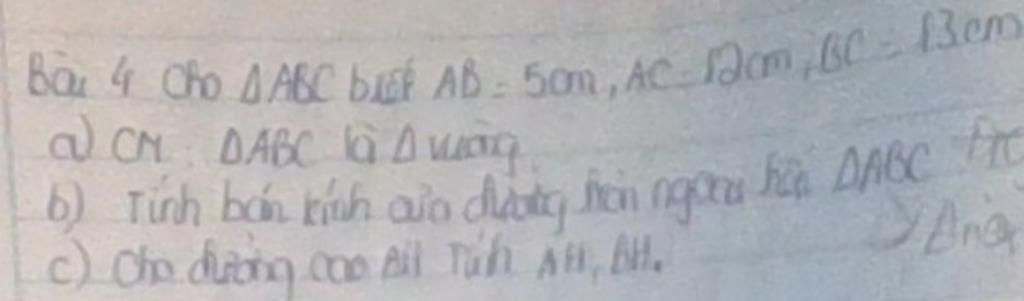 Bài 4 Cho ΔABC biết AB = 5cm, AC = 12cm, BC = 13cm
a) CM: ΔABC là Δ vuông.
b) Tính bán kính của đường tròn ngoại tiếp ΔABC
c) Cho đường cao AH Tính AH, BH.